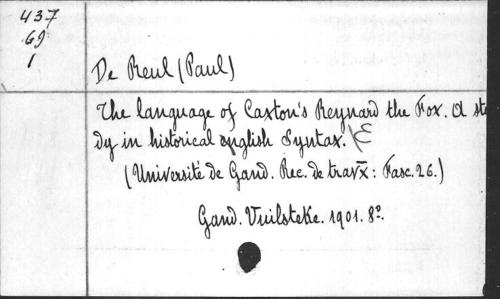 437
69
1
De Reul (Paul)
The language of Caxton's Reynard the Fox. A stu
dy in historical english Syntax. E
(Université de Gand. Rec. de travx: Fasc. 26.)
Gand. Vuilsteke. 1901. 8º.